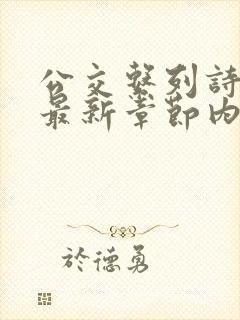 公交繫列詩
最新章節內
於德勇